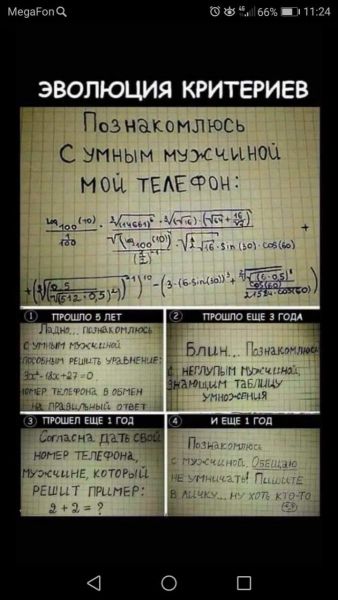 MegaFon 66% 11:24
ЭВОЛЮЦИЯ КРИТЕРИЕВ
Познакомлюсь
с умным мужчиной
мой телефон:
1 ПРОШЛО 5 ЛЕТ
Ладно... познакомлюсь
с умным мужчиной
способным решить уравнение:
-18x+27=0
номер телефона в обмен
на правильный ответ
2 ПРОШЛО ЕЩЕ 3 ГОДА
Блин... Познакомлюсь
с неглупым мужчиной,
знающим таблицу
умножения
3 ПРОШЕЛ ЕЩЕ 1 ГОД
Согласна дать свой
номер телефона,
мужчине, который
решит пример:
2+2=?
4 И ЕЩЕ 1 ГОД
Познакомлюсь
с мужчиной. Обещаю
не умничать! Пишите
в личку... ну хоть кто-то